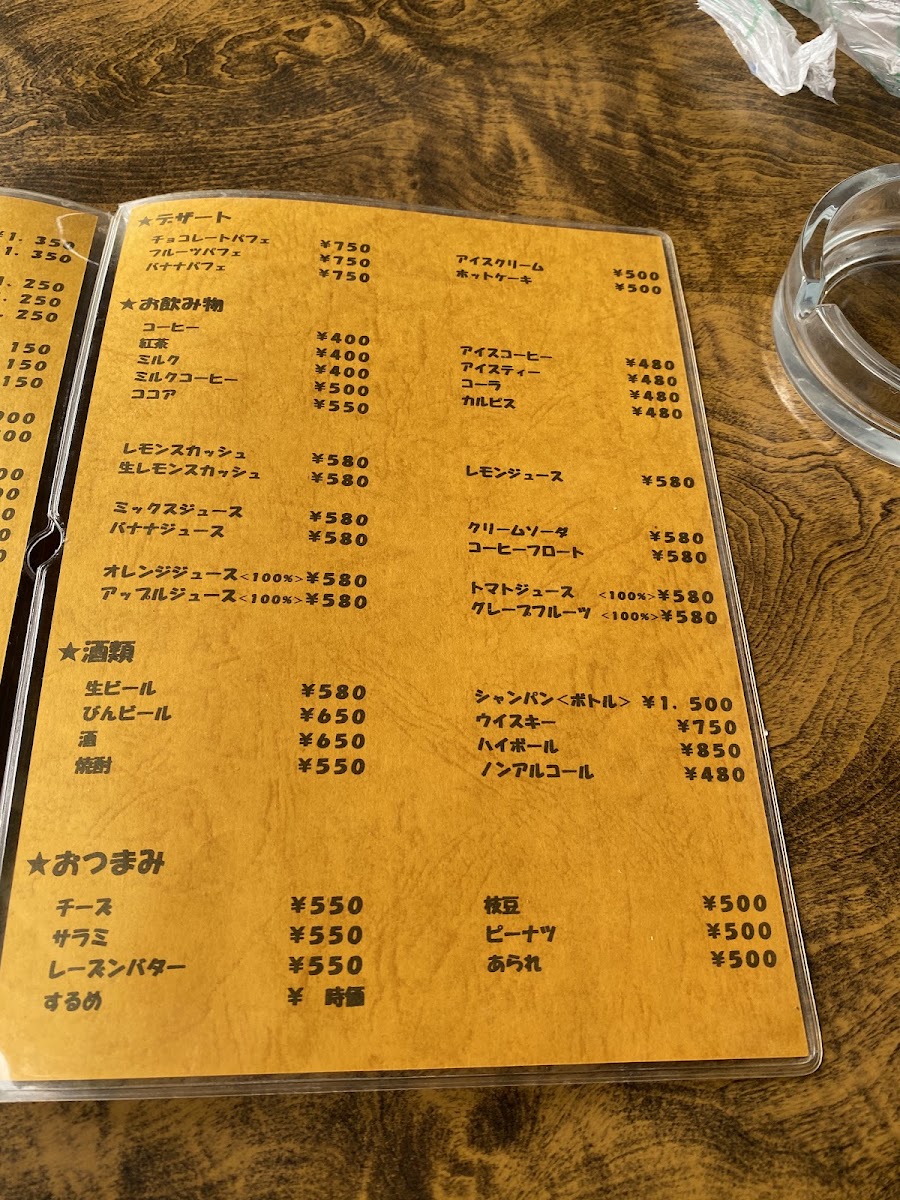 ¥1.350
1.350
1.250
1.250
.250
150
150
150
900
★デザート
チョコレートパフェ ¥750
フルーツパフェ ¥750
バナナパフェ ¥750
アイスクリーム ¥500
ホットケーキ ¥500
★お飲み物
コーヒー ¥400
紅茶 ¥400
ミルク ¥400
ミルクコーヒー ¥500
ココア ¥550
アイスコーヒー ¥480
アイスティー ¥480
コーラ ¥480
カルピス ¥480
レモンスカッシュ ¥580
生レモンスカッシュ ¥580
レモンジュース ¥580
ミックスジュース ¥580
バナナジュース ¥580
クリームソーダ ¥580
コーヒーフロート ¥580
オレンジジュース<100%>¥580
アップルジュース<100%>¥580
トマトジュース <100%>¥580
グレープフルーツ <100%>¥580
★酒類
生ビール ¥580
びんビール ¥650
酒 ¥650
焼酎 ¥550
シャンパン<ボトル> ¥1.500
ウイスキー ¥750
ハイボール ¥850
ノンアルコール ¥480
★おつまみ
チーズ ¥550
サラミ ¥550
レーズンバター ¥550
するめ ¥ 時価
枝豆 ¥500
ピーナツ ¥500
あられ ¥500